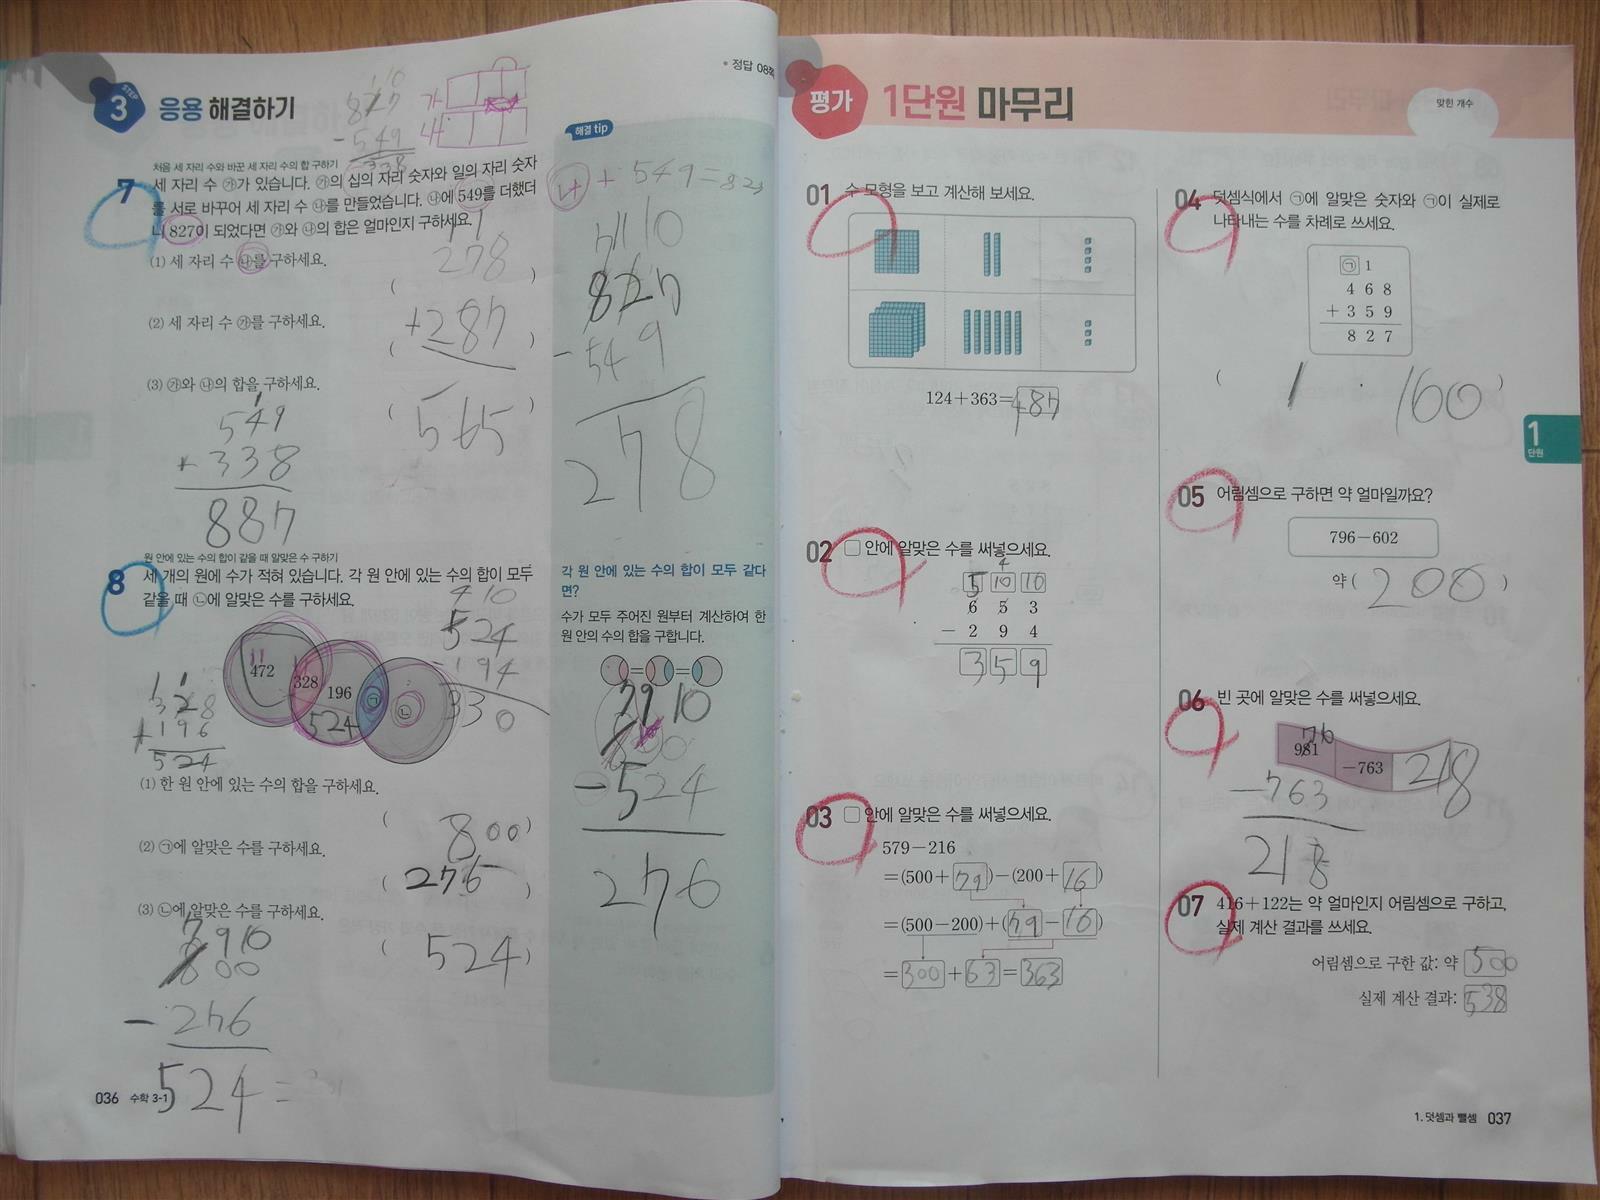 STEP
3 응용 해결하기
정답 08쪽
처음 세 자리 수와 바꾼 세 자리 수의 합 구하기
7 세 자리 수 ㉮가 있습니다. ㉮의 십의 자리 숫자와 일의 자리 숫자
를 서로 바꾸어 세 자리 수 ㉯를 만들었습니다. ㉯에 549를 더했더
니 827이 되었다면 ㉮와 ㉯의 합은 얼마인지 구하세요.
(1) 세 자리 수 ㉯를 구하세요.
( )
(2) 세 자리 수 ㉮를 구하세요.
( )
(3) ㉮와 ㉯의 합을 구하세요.
( 565 )
10
827
-549
338
가
나
1 1
278
+287
1
549
+338
887
해결 tip
나 + 549 = 82
7 11 10
827
-549
278
원 안에 있는 수의 합이 같을 때 알맞은 수 구하기
8 세 개의 원에 수가 적혀 있습니다. 각 원 안에 있는 수의 합이 모두
같을 때 ㉡에 알맞은 수를 구하세요.
4 10
524
-194
330
11
472 328 196 ㉠ ㉡
524
1 1
328
+196
524
(1) 한 원 안에 있는 수의 합을 구하세요.
( 800 )
(2) ㉠에 알맞은 수를 구하세요.
( 276 )
(3) ㉡에 알맞은 수를 구하세요.
( 524 )
7 9 10
800
-276
524 =
각 원 안에 있는 수의 합이 모두 같다
면?
수가 모두 주어진 원부터 계산하여 한
원 안의 수의 합을 구합니다.
= =
7 9 10
-524
276
036 수학 3-1
평가 1단원 마무리
맞힌 개수
01 수 모형을 보고 계산해 보세요.
124+363=487
02 □ 안에 알맞은 수를 써넣으세요.
4
5 10 10
6 5 3
- 2 9 4
3 5 9
03 □ 안에 알맞은 수를 써넣으세요.
579-216
=(500+79)-(200+16)
=(500-200)+(79-16)
=300+63=363
04 덧셈식에서 ㉠에 알맞은 숫자와 ㉠이 실제로
나타내는 수를 차례로 쓰세요.
㉠ 1
4 6 8
+ 3 5 9
8 2 7
( 1 , 100 )
1
단원
05 어림셈으로 구하면 약 얼마일까요?
796-602
약 ( 200 )
06 빈 곳에 알맞은 수를 써넣으세요.
981 -763 218
-763
218
07 416+122는 약 얼마인지 어림셈으로 구하고,
실제 계산 결과를 쓰세요.
어림셈으로 구한 값: 약 500
실제 계산 결과: 538
1. 덧셈과 뺄셈 037